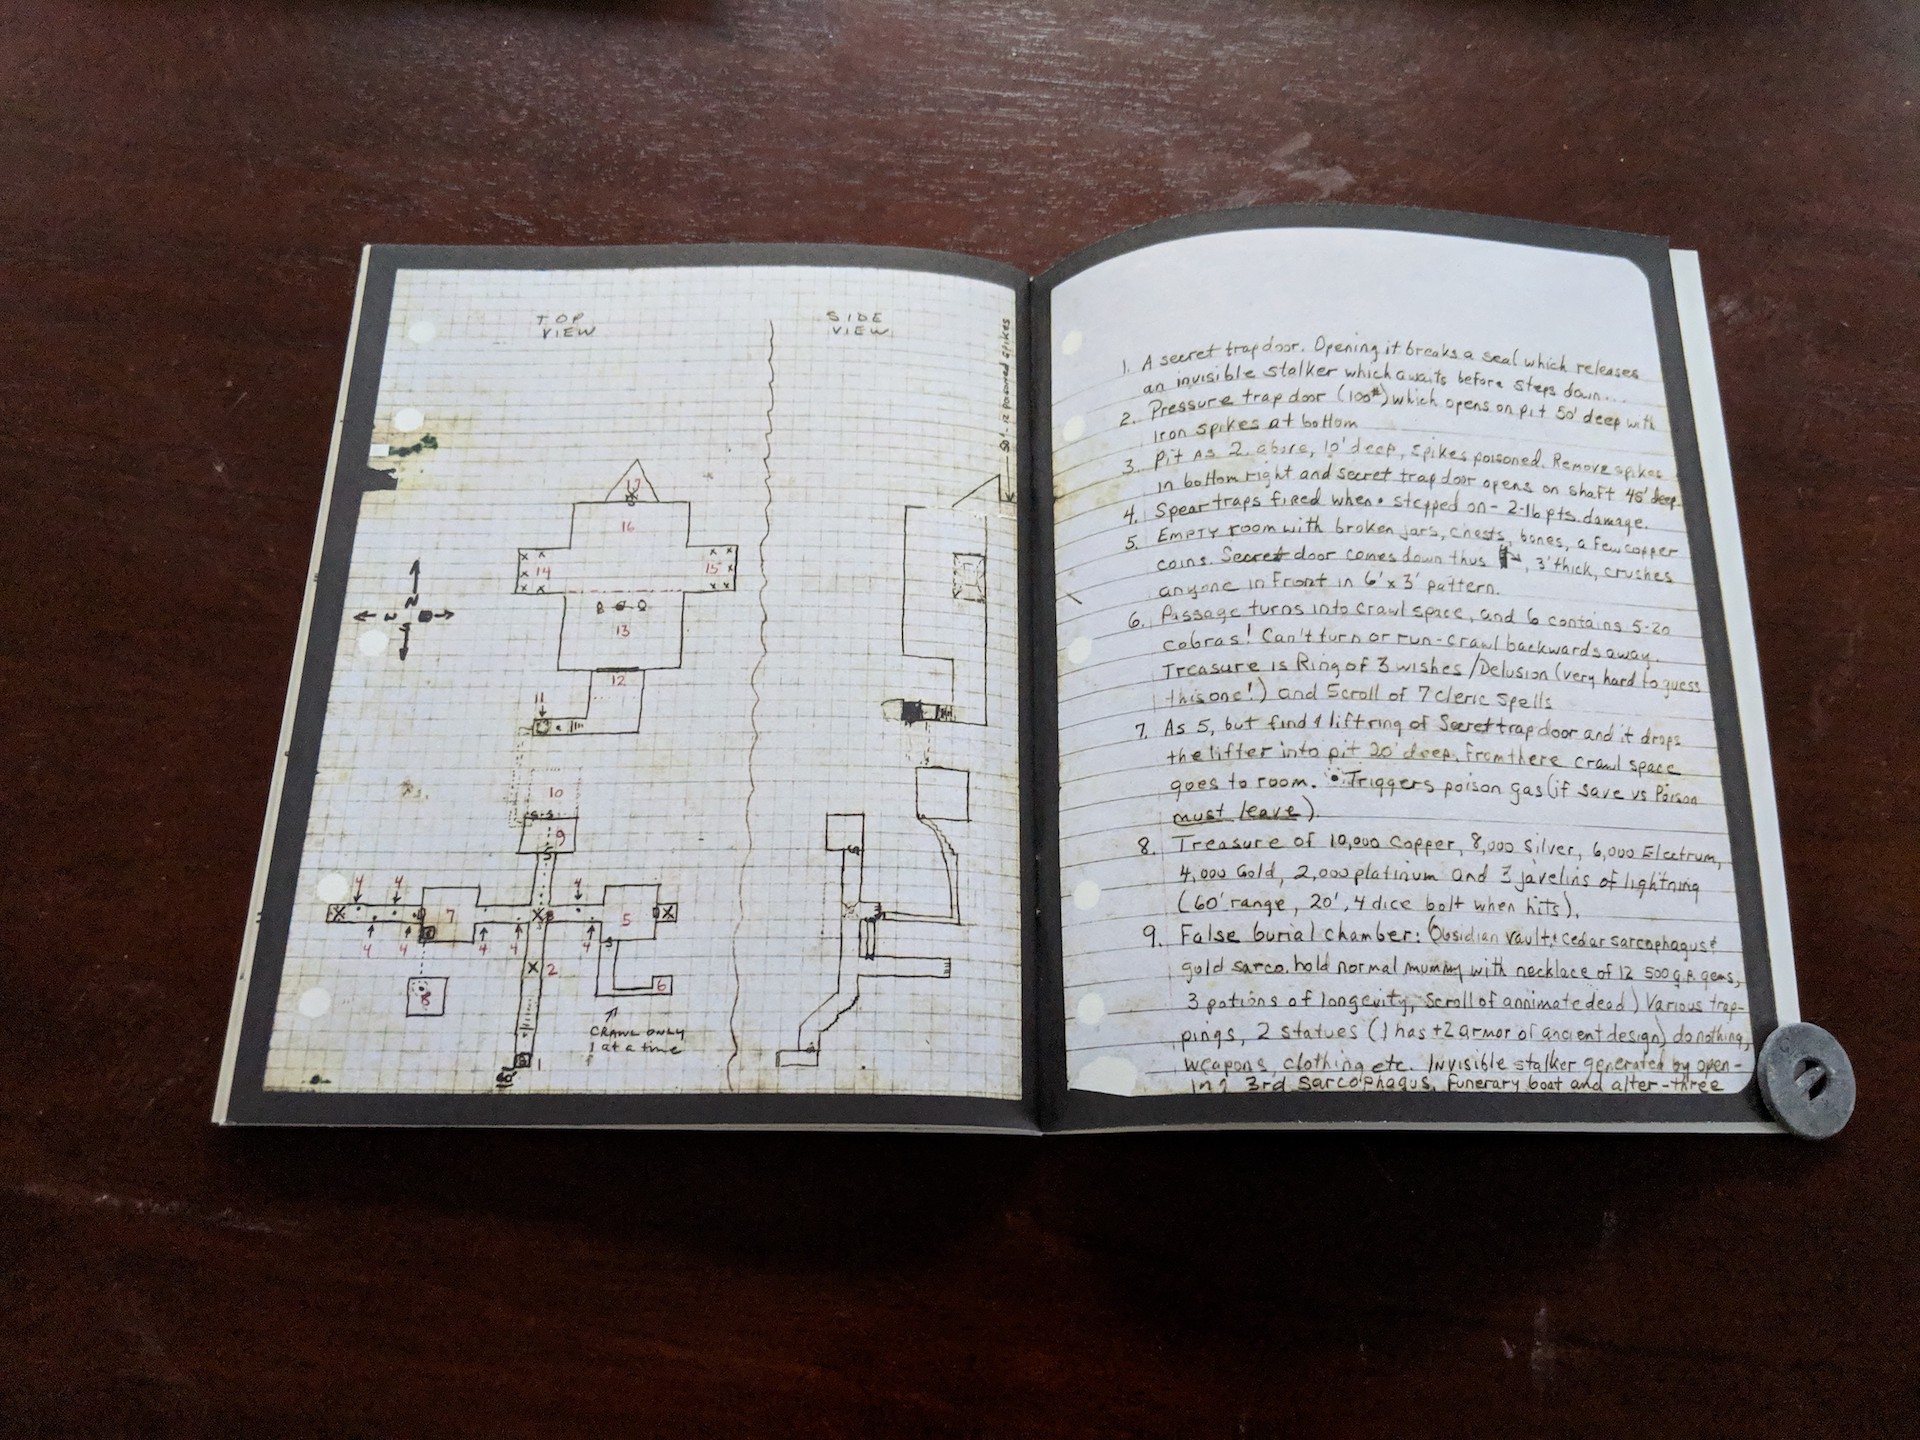 TOP
VIEW
SIDE
VIEW
50'-12 poisoned spikes
17
16
14
15
13
12
11
10
S-S
9
S
4
4
4
7
5
4
4
4
4
4
S
2
6
8
CRAWL ONLY
1 at a time
1
N
S
1. A secret trap door. Opening it breaks a seal which releases
an invisible stalker which awaits before steps down...
2. Pressure trap door (100#) which opens on pit 50' deep with
iron spikes at bottom
3. Pit as 2. above, 10' deep, spikes poisoned. Remove spikes
in bottom right and secret trap door opens on shaft 45' deep.
4. Spear traps fired when • stepped on - 2-16 pts. damage.
5. Empty room with broken jars, chests, bones, a few copper
coins. Secret door comes down thus, 3' thick, crushes
anyone in front in 6' x 3' pattern.
6. Passage turns into crawl space, and 6 contains 5-20
cobras! Can't turn or run - crawl backwards away.
Treasure is Ring of 3 wishes / Delusion (very hard to guess
this one!) and Scroll of 7 Cleric Spells
7. As 5, but find & lift ring of Secret trap door and it drops
the lifter into pit 20' deep. From there crawl space
goes to room. • Triggers poison gas (if save vs Poison
must leave).
8. Treasure of 10,000 Copper, 8,000 Silver, 6,000 Electrum,
4,000 Gold, 2,000 platinum and 3 javelins of lightning
(60' range, 20', 4 dice bolt when hits).
9. False burial chamber: (Obsidian vault & cedar sarcophagus &
gold sarco. hold normal mummy with necklace of 12 500 g.p. gems,
3 potions of longevity, Scroll of annimate dead) Various trap-
pings, 2 statues (1 has +2 armor of ancient design) do nothing,
weapons, clothing etc. Invisible stalker generated by open-
ing 3rd sarcophagus, funerary boat and alter - three